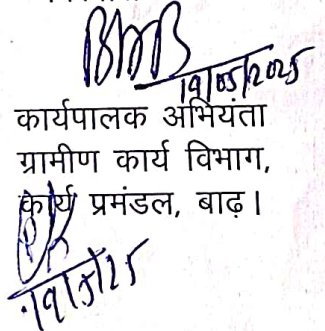 19/05/2025
कार्यपालक अभियंता
ग्रामीण कार्य विभाग,
कार्य प्रमंडल, बाढ़।
19/5/25